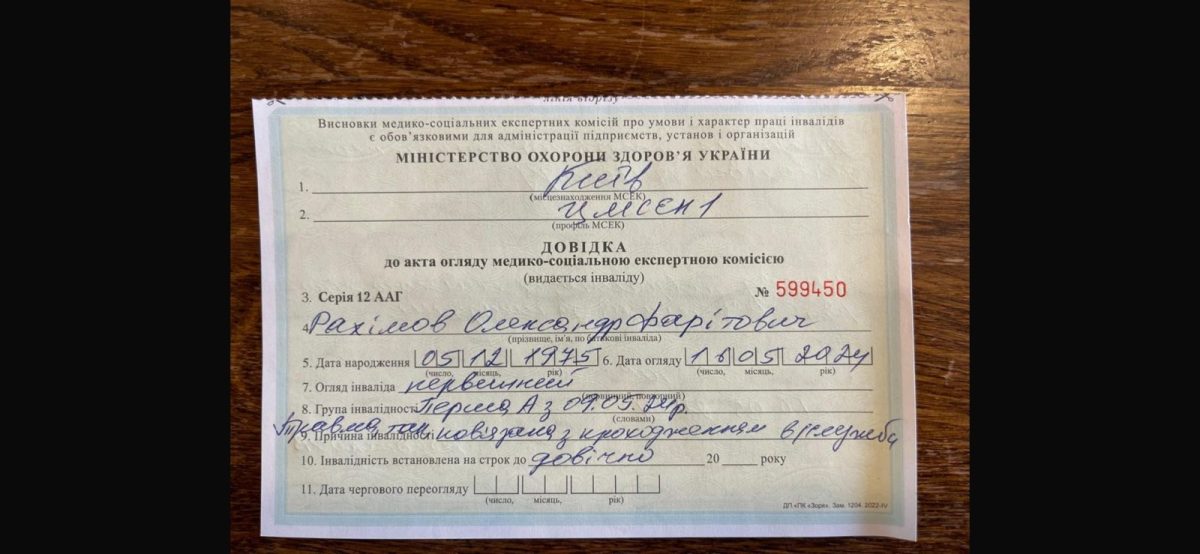 лінія відрізу
Висновки медико-соціальних експертних комісій про умови і характер праці інвалідів
є обов'язковими для адміністрації підприємств, установ і організацій
МІНІСТЕРСТВО ОХОРОНИ ЗДОРОВ'Я УКРАЇНИ
1. Київ
(місцезнаходження МСЕК)
2.
(профіль МСЕК)
ДОВІДКА
до акта огляду медико-соціальною експертною комісією
(видається інваліду)
3. Серія 12 ААГ № 599450
4. Рахімов Олександр Фарітович
(прізвище, ім'я, по батькові інваліда)
5. Дата народження 05 12 1975 6. Дата огляду 16 05 2024
(число, місяць, рік) (число, місяць, рік)
7. Огляд інваліда первинний
(первинний, повторний)
8. Група інвалідності Перша А з 09.05.24р.
(словами)
9. Причина інвалідності Травма, так, пов'язана з проходженням в/служби
10. Інвалідність встановлена на строк до довічно 20 року
11. Дата чергового переогляду
(число, місяць, рік)
ДП «ПК «Зоря». Зам. 1204. 2022-IV